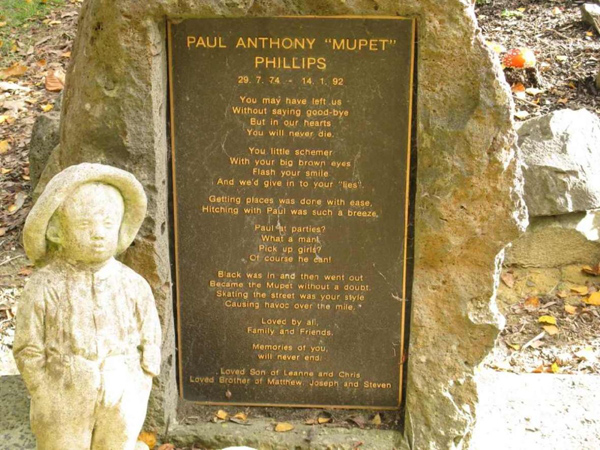 PAUL ANTHONY "MUPET"
PHILLIPS
29. 7. 74 - 14. 1. 92
You may have left us
Without saying good-bye
But in our hearts
You will never die.
You little schemer
With your big brown eyes
Flash your smile
And we'd give in to your "lies".
Getting places was done with ease,
Hitching with Paul was such a breeze.
Paul at parties?
What a man!
Pick up girls?
Of course he can!
Black was in and then went out
Became the Mupet without a doubt.
Skating the street was your style
Causing havoc over the mile.
Loved by all,
Family and Friends.
Memories of you,
will never end.
Loved Son of Leanne and Chris
Loved Brother of Matthew, Joseph and Steven